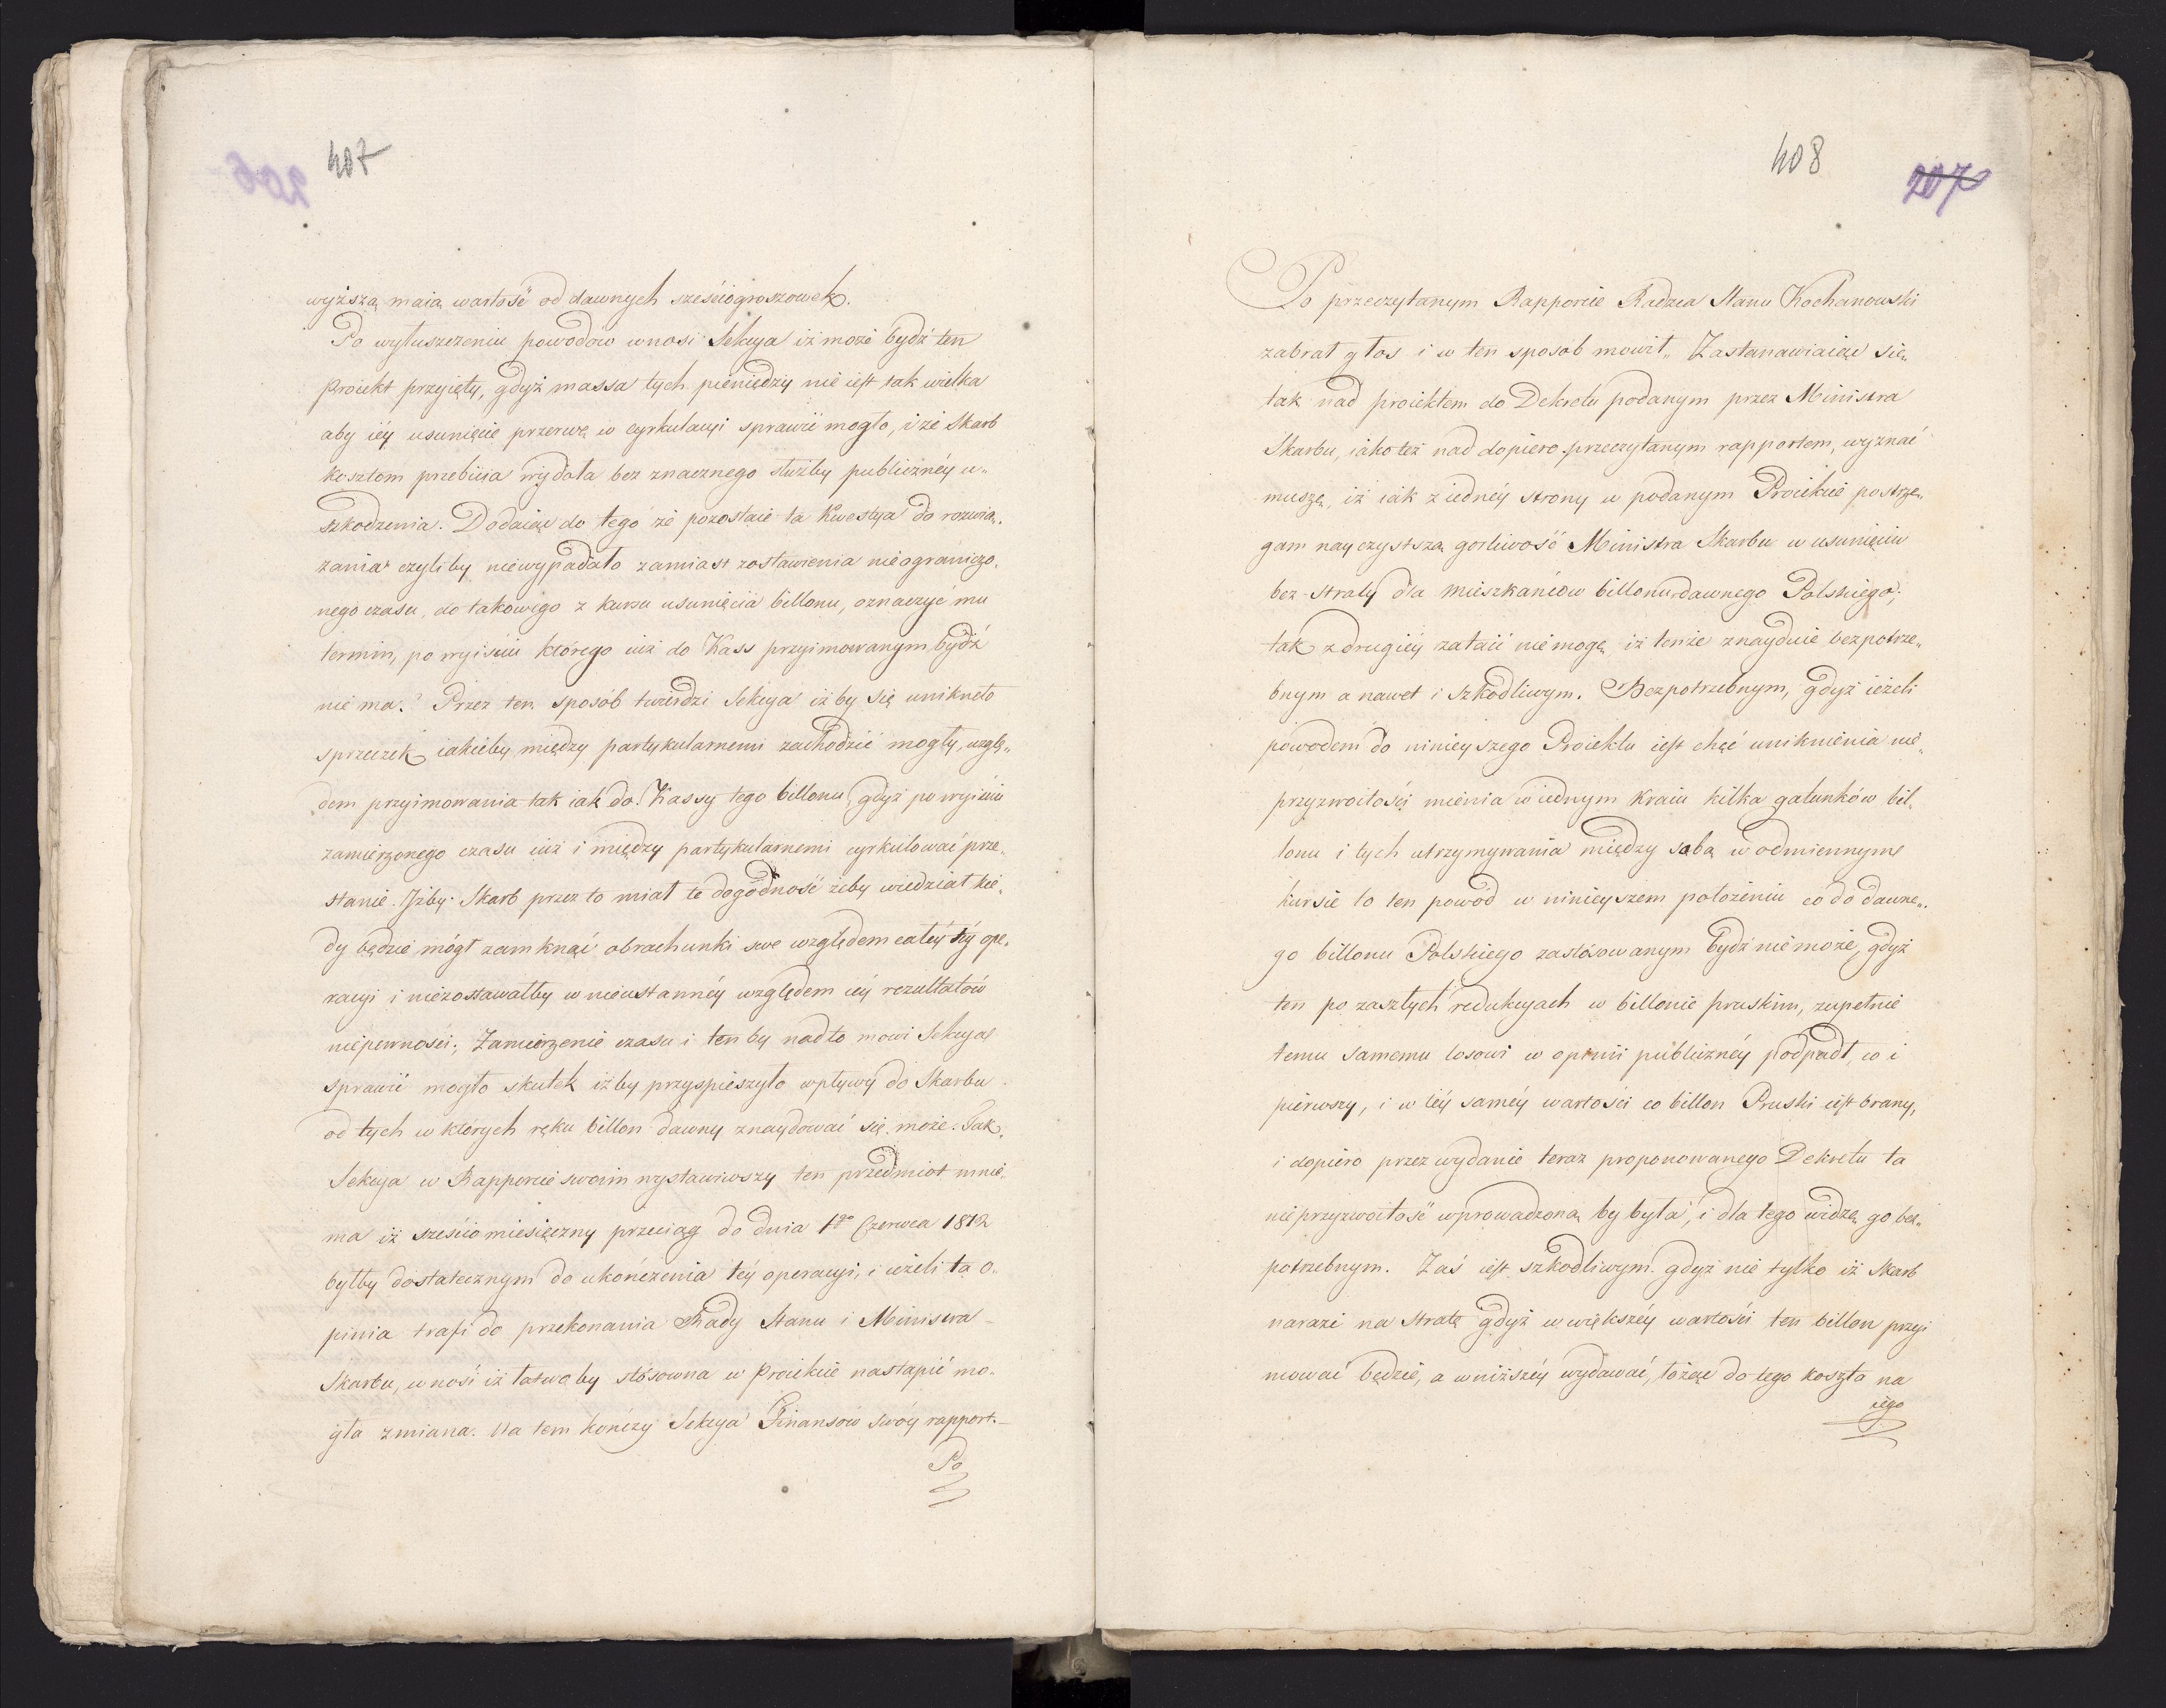 407
wyższą maią wartość od dawnych sześciogroszowek.
Po wyłuszczeniu powodów wnosi Sekcya iż może bydź ten
Proiekt przyięty, gdyż massa tych pieniędzy nie iest tak wielka
aby iéy usunięcie przerwę w cyrkulacyi sprawić mogło, i że Skarb
kosztom przebicia wydoła bez znacznego służby publicznéy u„
szkodzenia. Dodaiąc do tego że pozostaie ta kwestya do rozwią„
zania czyliby niewypadało zamiast zostawienia nieograniczo„
nego czasu, do takowego z kursu usunięcia billonu, oznaczyć mu
termin, po wyiściu którego iuż do Kass przyimowanym bydź
nie ma? Przez ten sposób twierdzi Sekcya iż by się uniknęło
sprzeczek iakieby między partykularnemi zachodzić mogły, wzglę„
dem przyimowania tak iak do Kassy tego billonu, gdyż po wyiściu
zamierzonego czasu iuż i między partykularnemi cyrkulować prze„
stanie. Iżby Skarb przez to miał te dogodność żeby wiedział kie„
dy będzie mógł zamknąć obrachunki swe względem całéy téy ope„
racyi i niezostawałby w nieustannéy względem iéy rezultatów
niepewności; Zamierzenie czasu i ten by nadto mowi Sekcya
sprawić mogło skutek iżby przyspieszyło wpływy do Skarbu
od tych w których ręku billon dawny znaydować się może. Tak
Sekcya w Rapporcie swoim wystawiwszy ten przedmiot mnie„
ma iż sześciomiesięczny przeciąg do dnia 1go Czerwca 1812
byłby dostatecznym do ukończenia téy operacyi, i ieżeli ta o„
pinia trafi do przekonania Rady Stanu i Ministra
Skarbu, wnosi iż łatwo by stósowna w Proiekcie nastąpić mo„
gła zmiana. Na tem kończy Sekcya Finansów swóy rapport.
Po
408
207
Po przeczytanym Rapporcie Radzca Stanu Kochanowski
zabrał głos i w ten sposob mowił „ Zastanawiaiąc się
tak nad proiektem do Dekretu podanym przez Ministra
Skarbu, iako też nad dopiero przeczytanym rapportem, wyznać
muszę, iż iak z iednéy strony w podanym Proiekcie postrze„
gam nayczystszą gorliwość Ministra Skarbu w usunięciu
bez straty dla mieszkańców billonu dawnego Polskiego;
tak z drugiéy zataić nie mogę iż tenże znayduie bezpotrze„
bnym a nawet i szkodliwym. Bezpotrzebnym, gdyż ieżeli
powodem do ninieyszego Proiektu iest chęć uniknienia nie„
przyzwoitości mienia w iednym kraiu kilka gatunków bil„
lonu i tych utrzymywania między sobą w odmiennym
kursie to ten powód w ninieyszem położeniu co do dawne„
go billonu Polskiego zastósowanym bydź nie może, gdyż
ten po zaszłych redukcyach w billonie pruskim, zupełnie
temu samemu losowi w opinii publicznéy podpadł, co i
pierwszy, i w téy saméy wartości co billon Pruski iest brany,
i dopiero przez wydanie teraz proponowanego Dekretu ta
nieprzyzwoitość wprowadzoną by była, i dla tego widzę go bez„
potrzebnym. Zaś iest szkodliwym gdyż nie tylko iż Skarb
narazi na stratę gdyż w większéy wartości ten billon przyi
mować będzie, a w niższéy wydawać, łożąc do tego koszta na
iego